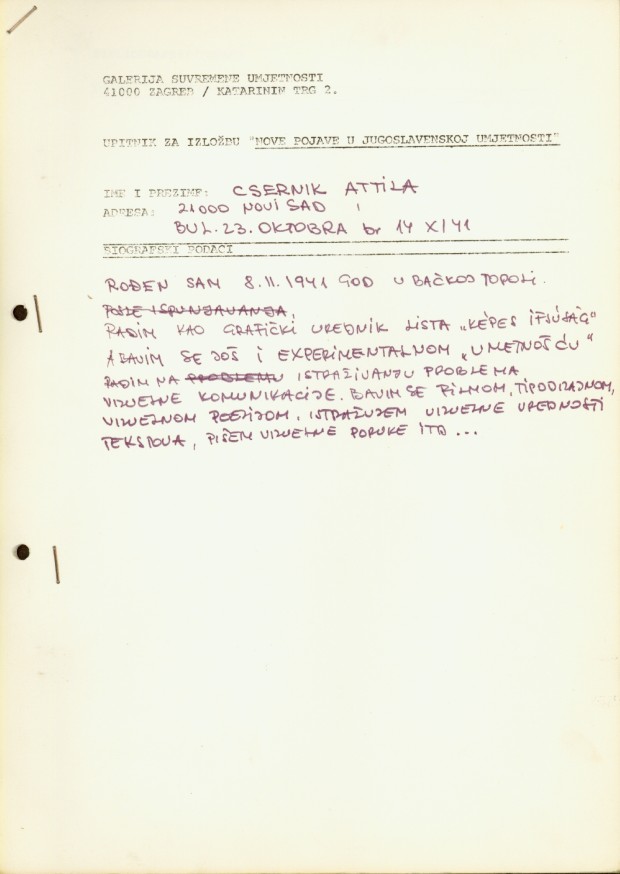 GALERIJA SUVREMENE UMJETNOSTI
41000 ZAGREB / KATARININ TRG 2.
UPITNIK ZA IZLOŽBU "NOVE POJAVE U JUGOSLAVENSKOJ UMJETNOSTI"
IME I PREZIME: CSERNIK ATTILA
ADRESA: 21000 NOVI SAD
BUL. 23. OKTOBRA br 14 XI/41
BIOGRAFSKI PODACI
ROĐEN SAM 8.II.1941 GOD U BAČKOJ TOPOLI.
POSLE ISPUNJAVANJA
RADIM KAO GRAFIČKI UREDNIK LISTA „KÉPES IFJÚSÁG"
A BAVIM SE JOŠ I EXPERIMENTALNOM „UMETNOŠĆU"
RADIM NA PROBLEMU ISTRAŽIVANJU PROBLEMA
VIZUELNE KOMUNIKACIJE. BAVIM SE FILMOM, TIPODIZAJNOM,
VIZUELNOM POEZIJOM, ISTRAŽUJEM VIZUELNE VREDNOSTI
TEKSTOVA, PIŠEM VIZUELNE PORUKE ITD...